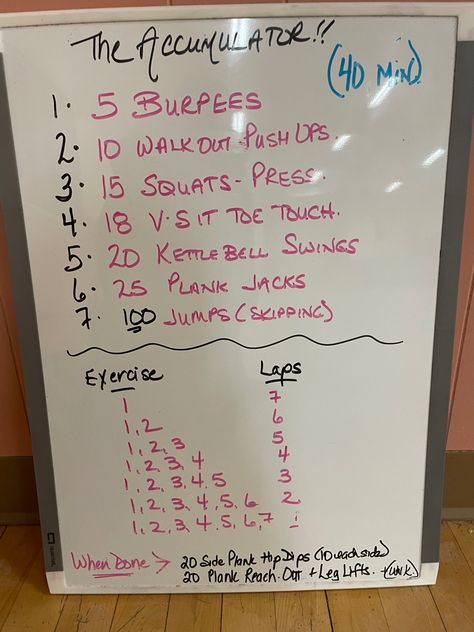 The Accumulator!!
(40 Min)
1. 5 Burpees
2. 10 Walk Out Push Ups.
3. 15 Squats - Press.
4. 18 V-Sit Toe Touch.
5. 20 Kettlebell Swings
6. 25 Plank Jacks
7. 100 Jumps (Skipping)
Exercise Laps
1 7
1, 2 6
1, 2, 3 5
1, 2, 3, 4 4
1, 2, 3, 4, 5 3
1, 2, 3, 4, 5, 6 2
1, 2, 3, 4, 5, 6, 7 1
When Done > 20 Side Plank Hip Dips (10 each side)
20 Plank Reach Out + Leg Lifts.